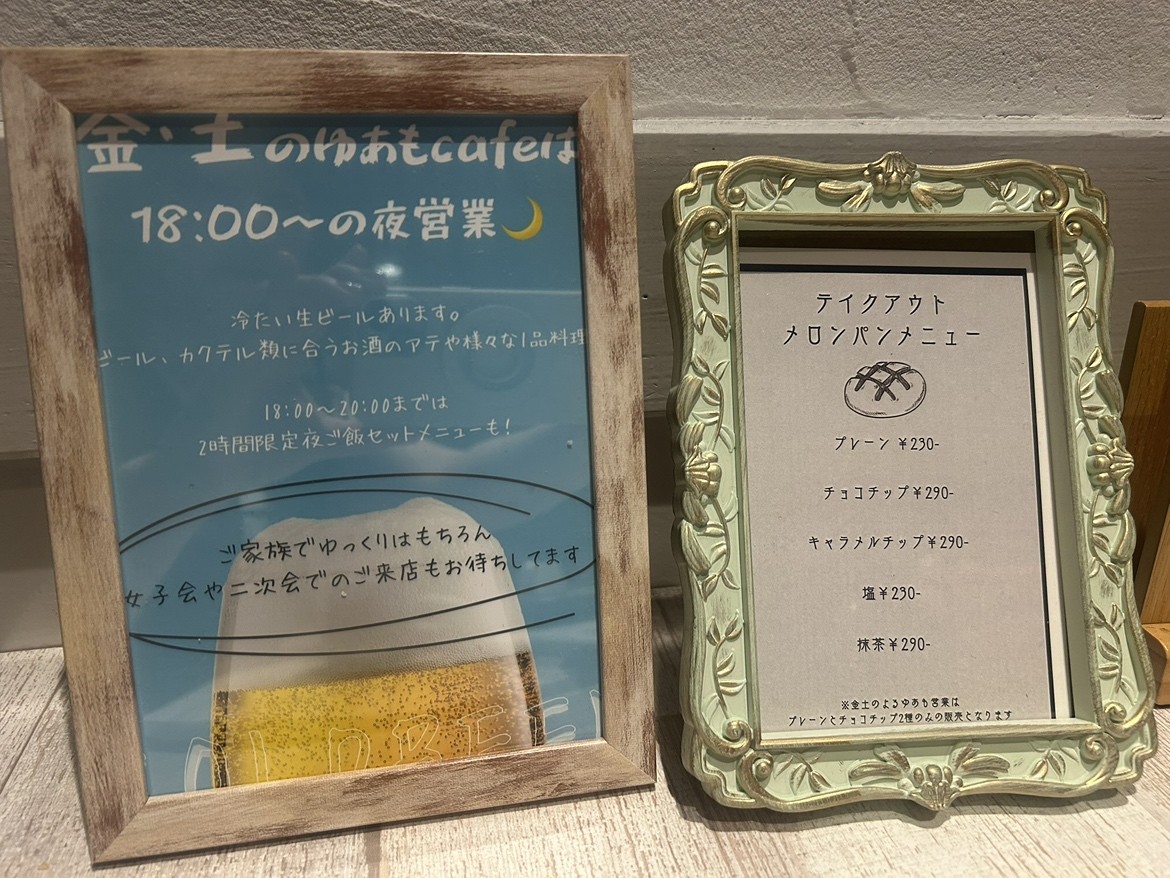 金・土のゆあもcafeは
18:00〜の夜営業
冷たい生ビールあります。
ビール、カクテル類に合うお酒のアテや様々な1品料理
18:00〜20:00までは
2時間限定夜ご飯セットメニューも!
ご家族でゆっくりはもちろん
女子会や二次会でのご来店もお待ちしてます
テイクアウト
メロンパンメニュー
プレーン ¥230-
チョコチップ¥290-
キャラメルチップ¥290-
塩¥230-
抹茶¥290-
※金土のよるゆあも営業は
プレーンとチョコチップ2種のみの販売となります